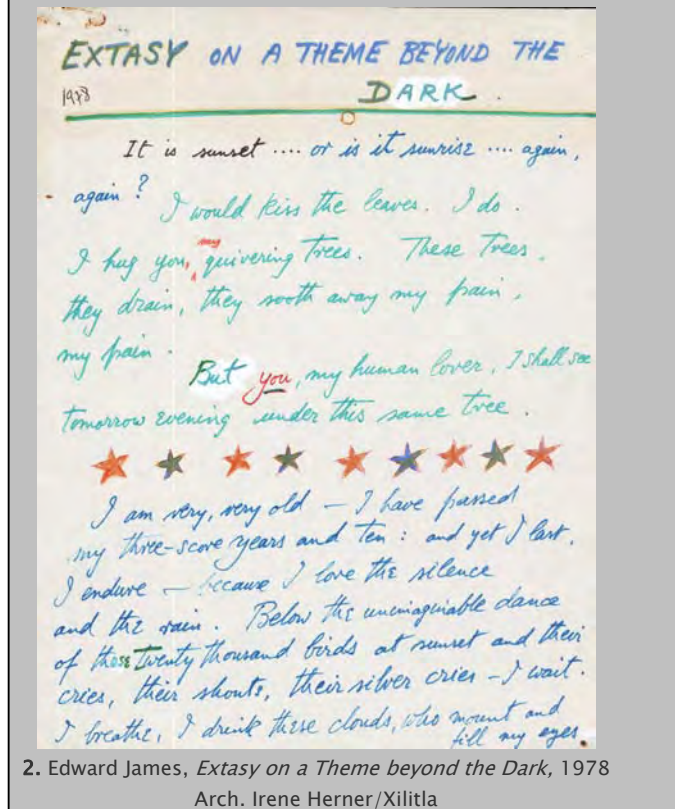 EXTASY ON A THEME BEYOND THE
1978 DARK.
It is sunset .... or is it sunrise .... again,
again?
I would kiss the leaves. I do.
I hug you, my quivering trees. These Trees,
they drain, they sooth away my pain,
my pain.
But you, my human lover, I shall see
tomorrow evening under this same tree.
I am very, very old – I have passed
my three-score years and ten : and yet I last,
I endure – because I love the silence
and the rain. Below the unimaginable dance
of those Twenty thousand birds at sunset and their
cries, their shouts, their silver cries – I wait.
I breathe, I drink these clouds, who mount and
fill my eyes
2. Edward James, Extasy on a Theme beyond the Dark, 1978
Arch. Irene Herner/Xilitla